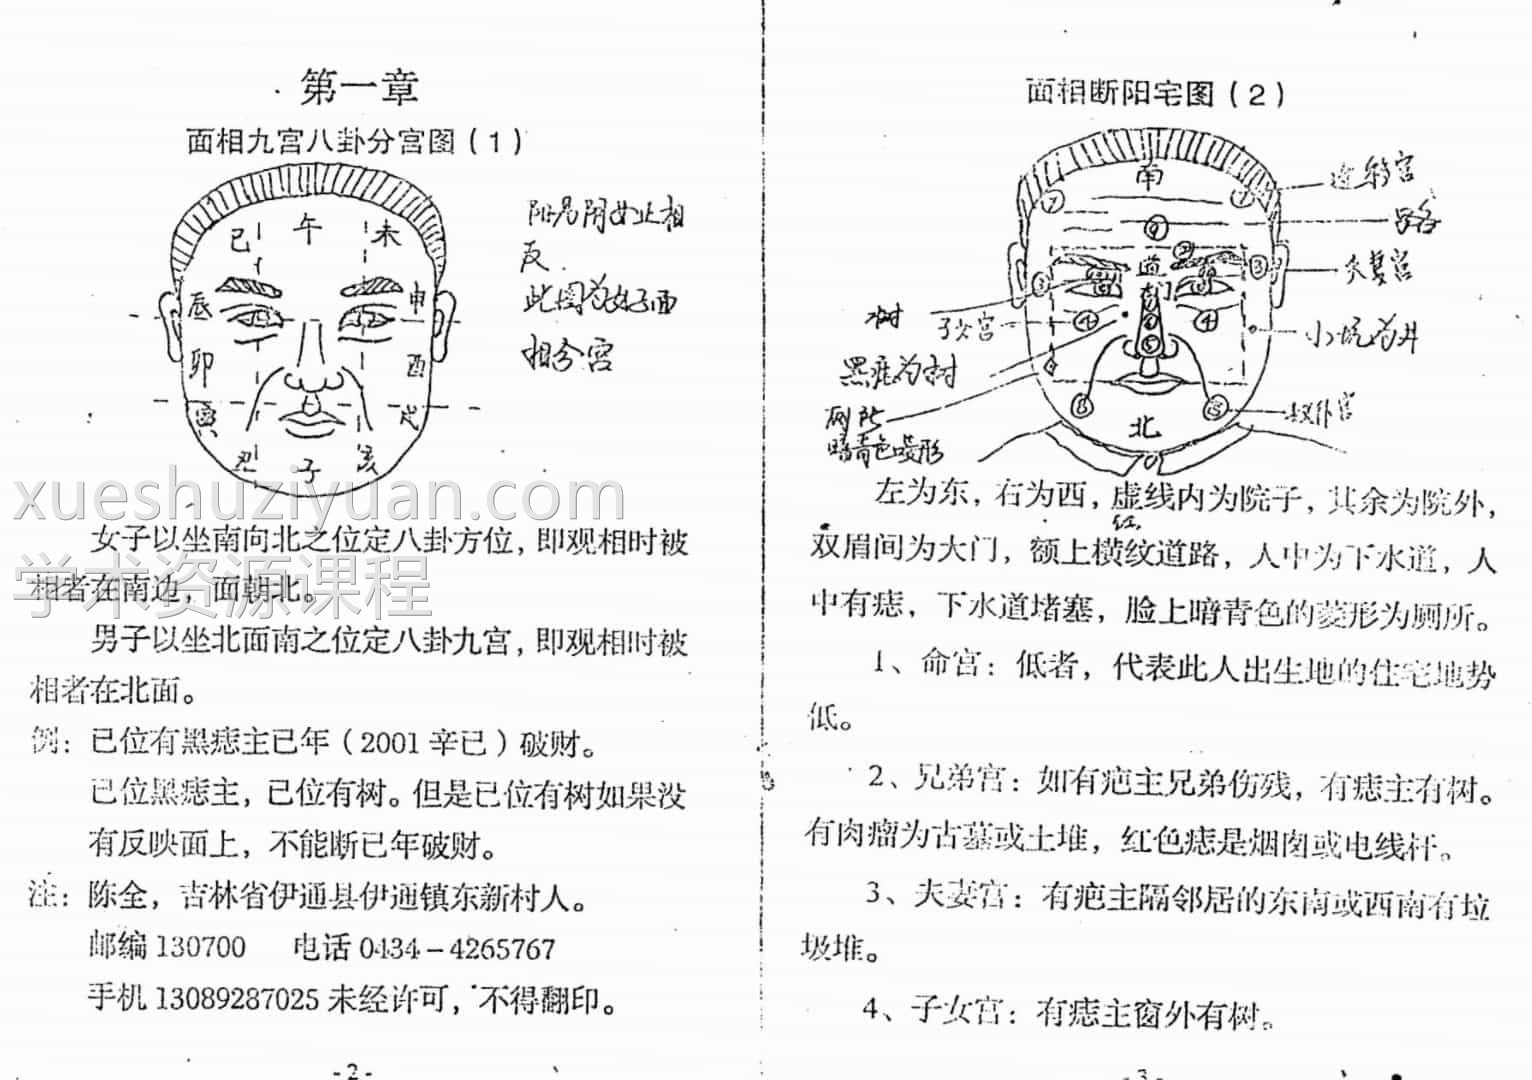 第一章
面相九宫八卦分宫图（1）
午
巳
未
辰
申
卯
酉
寅
戌
丑
子
亥
阳男阴女正相
反.
此图为女子面
相分宫
xueshuziyuan.com
学术资源课程
女子以坐南向北之位定八卦方位，即观相时被
相者在南边，面朝北。
男子以坐北面南之位定八卦九宫，即观相时被
相者在北面。
例：巳位有黑痣主巳年（2001辛巳）破财。
巳位黑痣主，巳位有树。但是巳位有树如果没
有反映面上，不能断巳年破财。
注：陈全，吉林省伊通县伊通镇东新村人。
邮编130700 电话0434-4265767
手机13089287025未经许可，不得翻印。
-2-
面相断阳宅图（2）
南
迁移宫
路
夫妻宫
道
树
子女宫
小坑为井
黑痣为树
厕所
暗青色菱形
北
左为东，右为西，虚线内为院子，其余为院外，
红
双眉间为大门，额上横纹道路，人中为下水道，人
中有痣，下水道堵塞，脸上暗青色的菱形为厕所。
1、命宫：低者，代表此人出生地的住宅地势
低。
2、兄弟宫：如有疤主兄弟伤残，有痣主有树。
有肉瘤为古墓或土堆，红色痣是烟囱或电线杆。
3、夫妻宫：有疤主隔邻居的东南或西南有垃
圾堆。
4、子女宫：有痣主窗外有树。
-3-